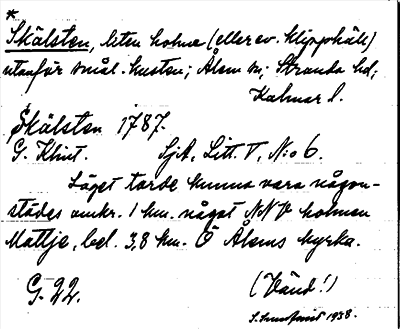 *
Skälsten, liten holme (eller ev. klipphäll)
utanför smål. kusten; Ålem sn, Stranda hd,
Kalmar l.
Skälsten 1787.
G. Klint. SjA, Litt. T, N:o 6.
Läget torde kunna vara någon-
städes omkr. 1 km. något NNV holmen
Mattje, bel. 3,8 km. Ö Ålems kyrka.
G. 22. (Vänd!)
1938.